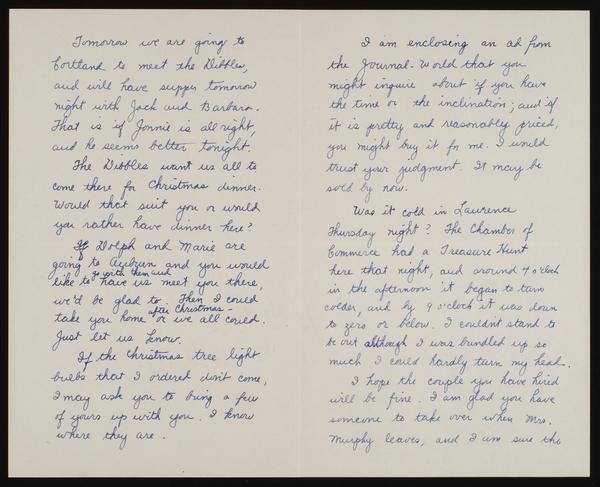 Tomorrow we are going to
Cortland to meet the Dibbles,
and will have supper tomorrow
night with Jack and Barbara.
That is if Jonnie is all right,
and he seems better tonight.
The Dibbles want us all to
come there for Christmas dinner.
Would that suit you or would
you rather have dinner here?
If Dolph and Marie are
going to Auburn and you would
like to go with them and have us meet you there,
we'd be glad to. Then I could
take you home after Christmas - or we all could.
Just let us know.
If the Christmas tree light
bulbs that I ordered don't come,
I may ask you to bring a few
of yours up with you. I know
where they are.
I am enclosing an ad from
the Journal-World that you
might inquire about if you have
the time or the inclination; and if
it is pretty and reasonably priced,
you might buy it for me. I would
trust your judgment. It may be
sold by now.
Was it cold in Lawrence
Thursday night? The Chamber of
Commerce had a Treasure Hunt
here that night, and around 4 o'clock
in the afternoon it began to turn
colder, and by 9 o'clock it was down
to zero or below. I couldn't stand to
be out although I was bundled up so
much I could hardly turn my head.
I hope the couple you have hired
will be fine. I am glad you have
someone to take over when Mrs.
Murphy leaves, and I am sure the